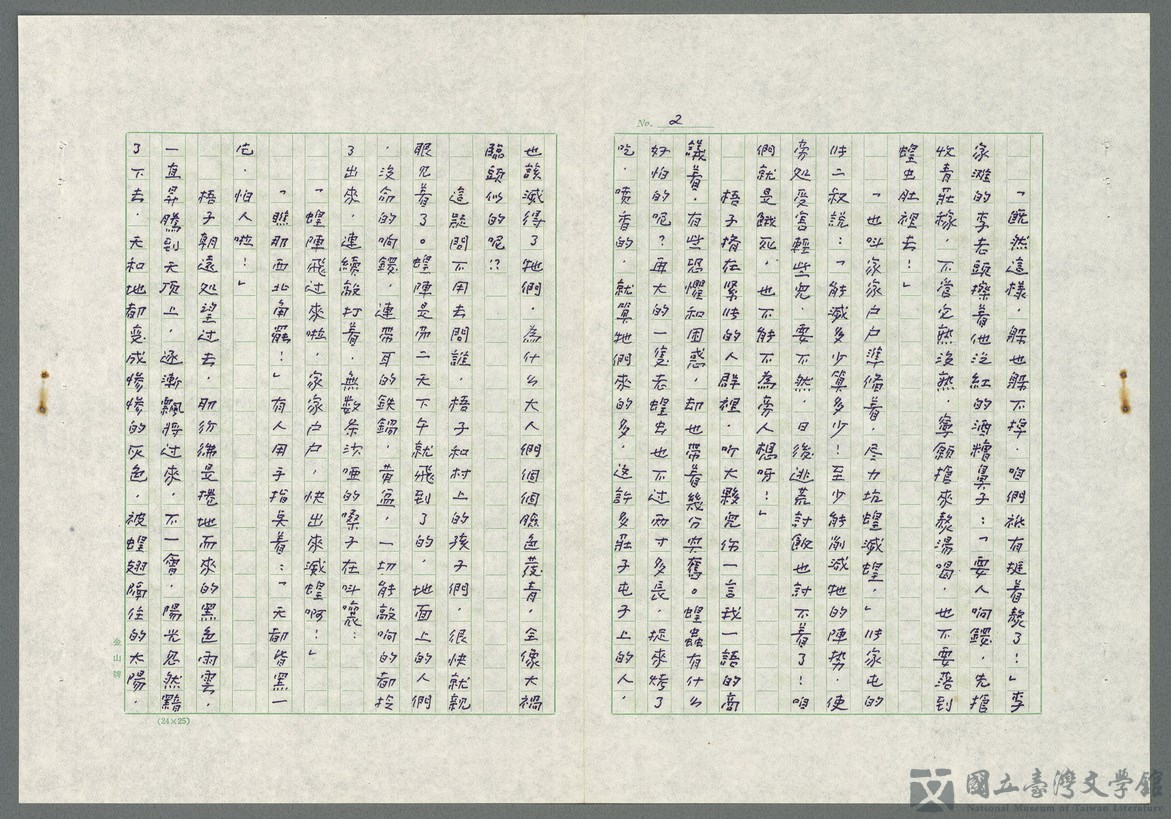 No. 2
「既然這樣，躲也躲不掉，咱們祇有挺着熬了！」李
家灘的李老頭擦着他泛紅的酒糟鼻子：「要人响鑼，先搶
收青莊稼，不管它熟沒熟，寧願搶來熬湯喝，也不要落到
蝗虫肚裡去！」
「也叫家家户户準備着，尽力坑蝗滅蝗，」时家屯的
时二叔說：「能滅多少算多少！至少能削減牠的陣势，使
旁处受害輕些兒，要不然，日後逃荒討飯也討不着了！咱
們就是餓死，也不能不為旁人想呀！」
梧子擠在緊张的人群裡，听大夥兒你一言我一語的商
議着，有些恐懼和困惑，却也帶着幾分興奮。蝗蟲有什么
好怕的呢？再大的一隻老蝗虫也不过兩寸多長，捉來烤了
吃，噴香的，就算牠們來的多，这許多莊子屯子上的人，
也該滅得了牠們，為什么大人們個個臉色發青，全像大禍
臨頭似的呢！？
這疑問不用去問誰，梧子和村上的孩子們，很快就親
眼見着了。蝗陣是第二天下午就飛到了的，地面上的人們
，沒命的响鑼，連帶耳的鉄鍋，黄盆，一切能敲响的都拎
了出來，連續敲打着，無數条沙啞的嗓子在叫嚷：
「蝗陣飛过來啦，家家户户，快出來滅蝗啊！」
「瞧那西北角罷！」有人用手指臭着：「天都皆黑一
宅，怕人啦！」
梧子朝遠处望过去，彷彿是捲地而來的黑色雨雲，
一直昇騰到天顶上，逐漸飄將过來，不一會，陽光忽然黯
了下去，天和地都变成慘慘的灰色，被蝗翅隔住的太陽，
(24×25)
金山牌
國立臺灣文學館
National Museum of Taiwan Literature